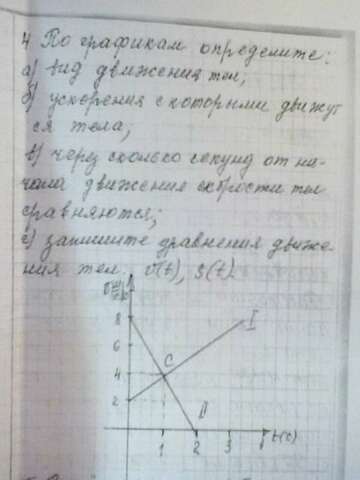 4 По графикам определите:
а) вид движения тел;
б) ускорения с которыми движут
ся тела;
в) через сколько секунд от на-
чала движения скорости тел
сравняются;
г) запишите уравнения движе-
ния тел. v(t), s(t).
8
I
6
C
4
2
II
1 2 3 t(c)